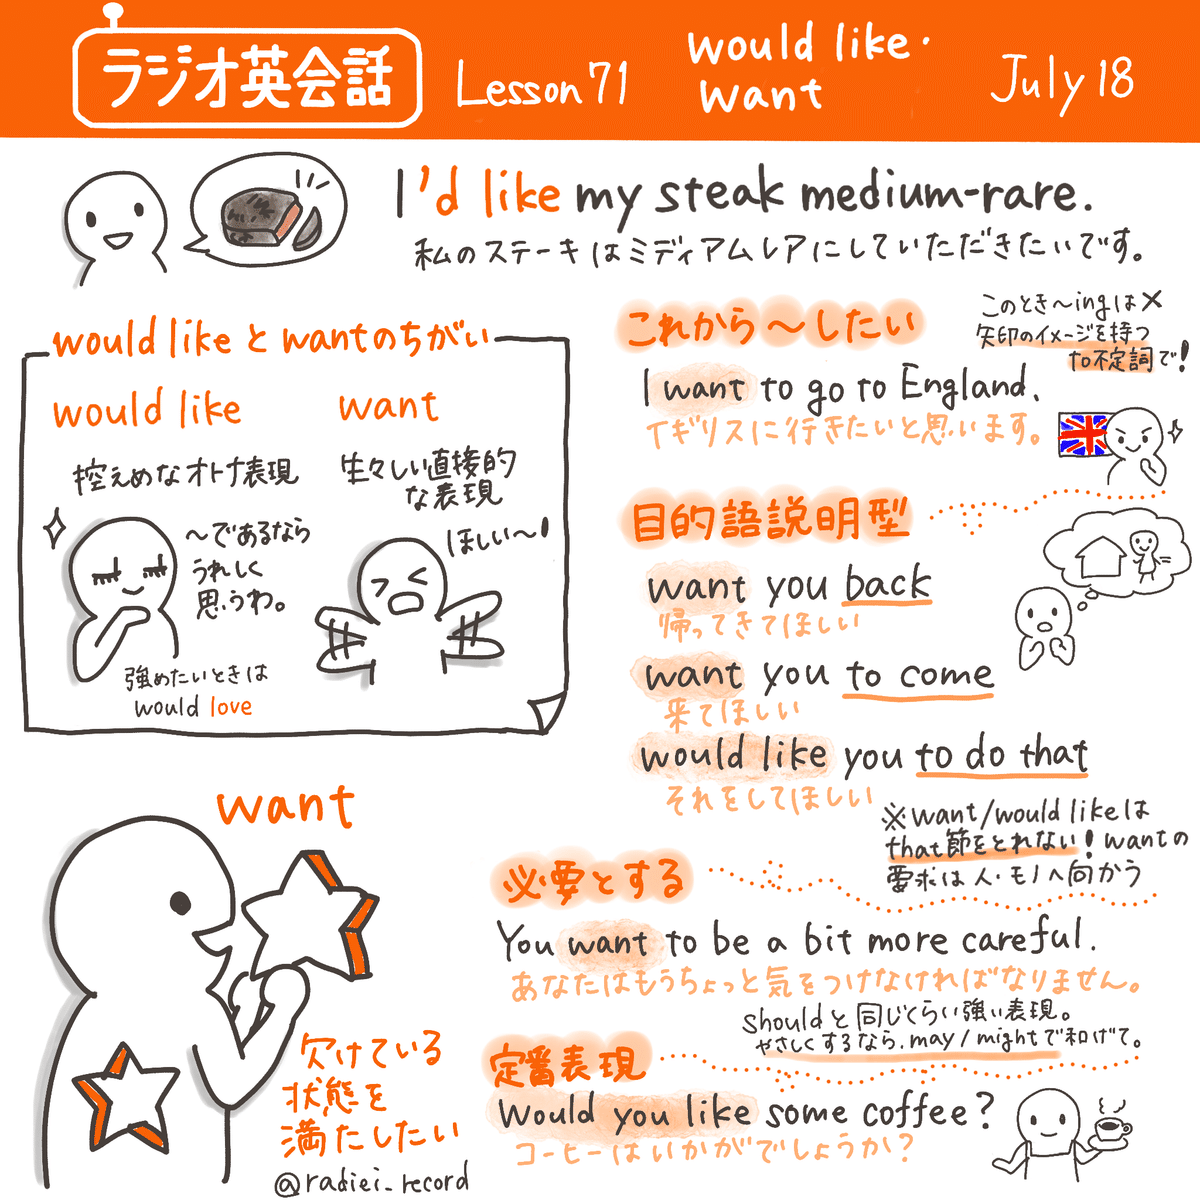 ラジオ英会話
Lesson 71
would like・
want
July 18
I'd like my steak medium-rare.
私のステーキはミディアムレアにしていただきたいです。
would like と wantのちがい
would like
控えめなオトナ表現
〜であるなら
うれしく
思うわ。
強めたいときは
would love
want
生々しい直接的
な表現
ほしい〜！
これから〜したい
このとき〜ingは×
矢印のイメージを持つ
to不定詞で！
I want to go to England.
イギリスに行きたいと思います。
目的語説明型
want you back
帰ってきてほしい
want you to come
来てほしい
would like you to do that
それをしてほしい
※want/would likeは
that節をとれない！wantの
要求は人・モノへ向かう
want
欠けている
状態を
満たしたい
必要とする
You want to be a bit more careful.
あなたはもうちょっと気をつけなければなりません。
shouldと同じくらい強い表現。
やさしくするなら、may/mightで和げて。
定番表現
Would you like some coffee?
コーヒーはいかがでしょうか？
@radiei_record